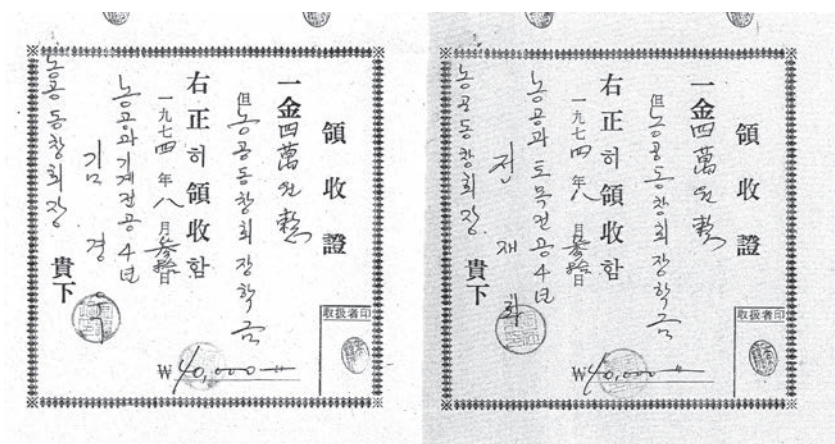 領收證
一金四萬원整
但 농공동창회장학금
右正히領收함
一九七四年八月參拾日
농공과 토목전공 4년
전재
농공동창회장 貴下
取扱者印
₩40,000
領收證
一金四萬원整
但 농공동창회장학금
右正히領收함
一九七四年八月參拾日
농공과 기계전공 4년
김경
농공동창회장 貴下
取扱者印
₩40,000